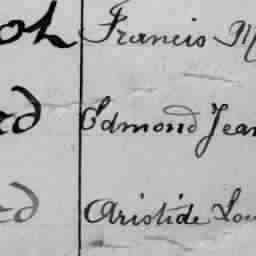 oh Francis M
rd Edmond Jean
rd Aristide Lou